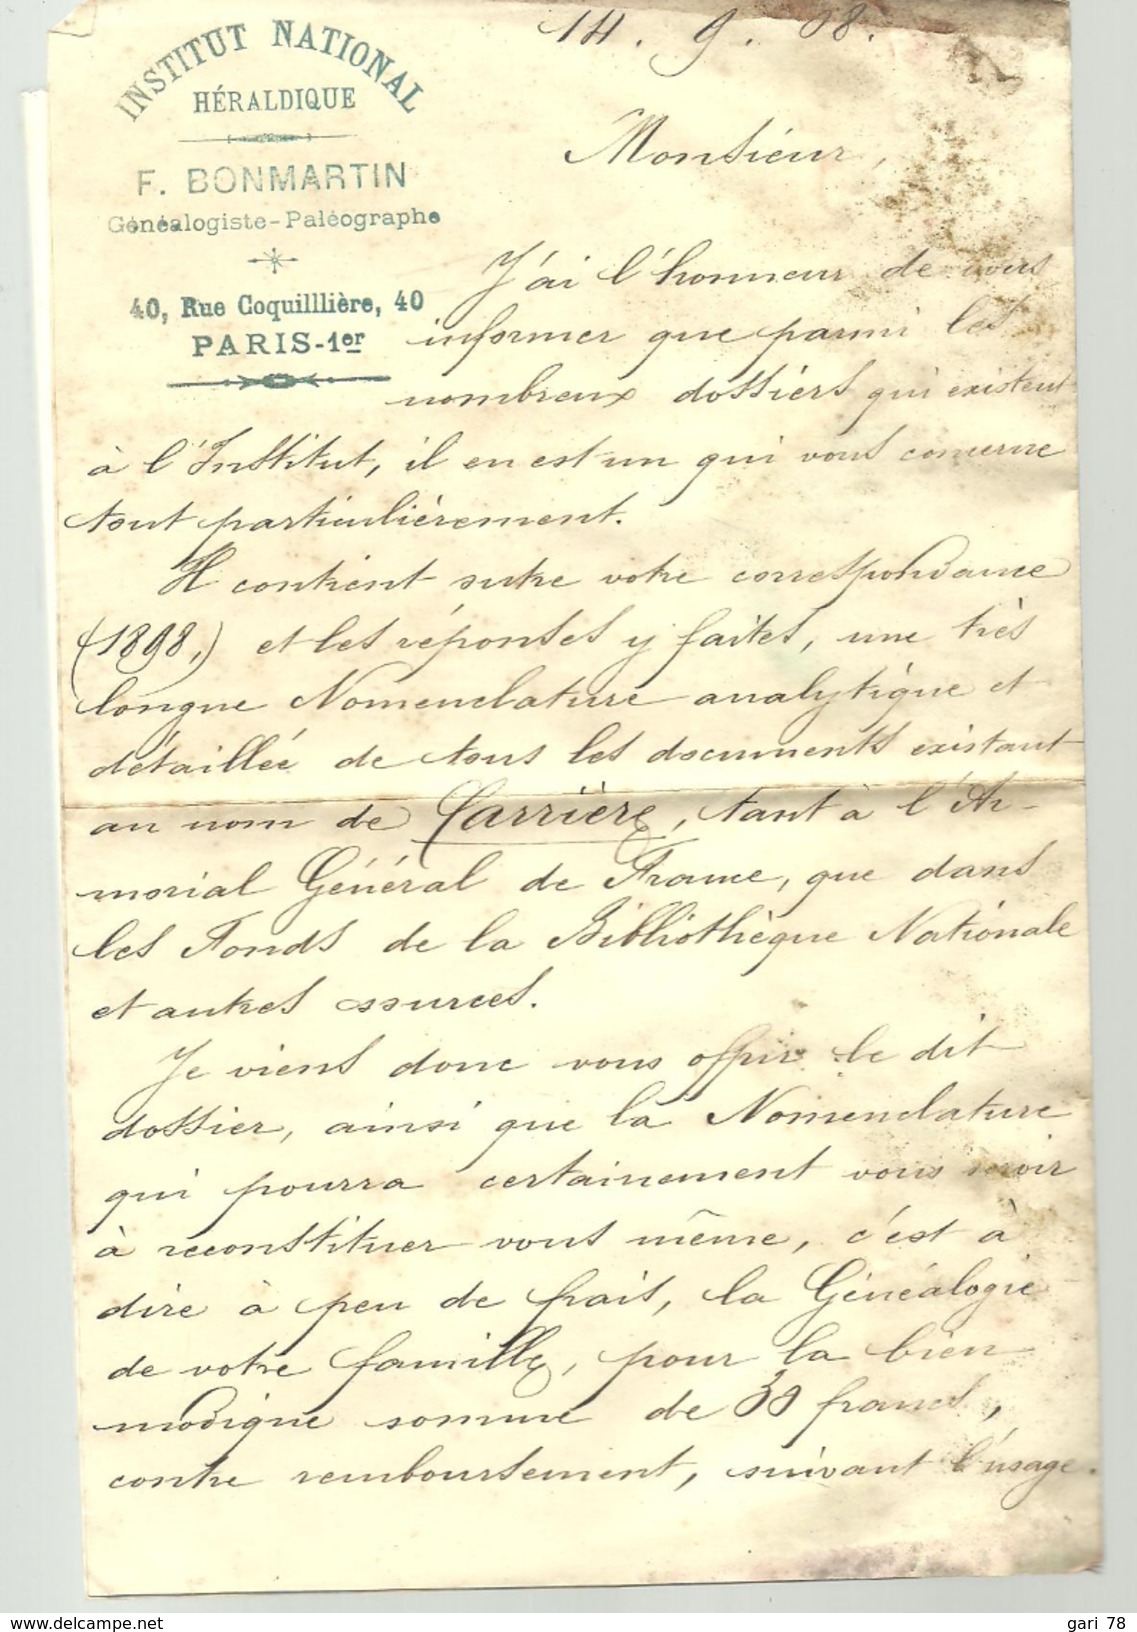 INSTITUT NATIONAL
HÉRALDIQUE
F. BONMARTIN
Généalogiste-Paléographe
40, Rue Coquilllière, 40
PARIS-1er
14. 9. 08.
Monsieur,
J'ai l'honneur de vous
informer que parmi les
nombreux dossiers qui existent
à l'Institut, il en est un qui vous concerne
tout particulièrement.
Il contient outre votre correspondance
(1898,) et les réponses y faites, une très
longue Nomenclature analytique et
détaillée de tous les documents existant
au nom de Carrière, tant à l'Ar-
morial Général de France, que dans
les Fonds de la Bibliothèque Nationale
et autres sources.
Je viens donc vous offrir le dit
dossier, ainsi que la Nomenclature
qui pourra certainement vous servir
à reconstituer vous même, c'est à
dire à peu de frais, la Généalogie
de votre famille, pour la bien
modique somme de francs,
contre remboursement, suivant l'usage.
www.delcampe.net
gari 78